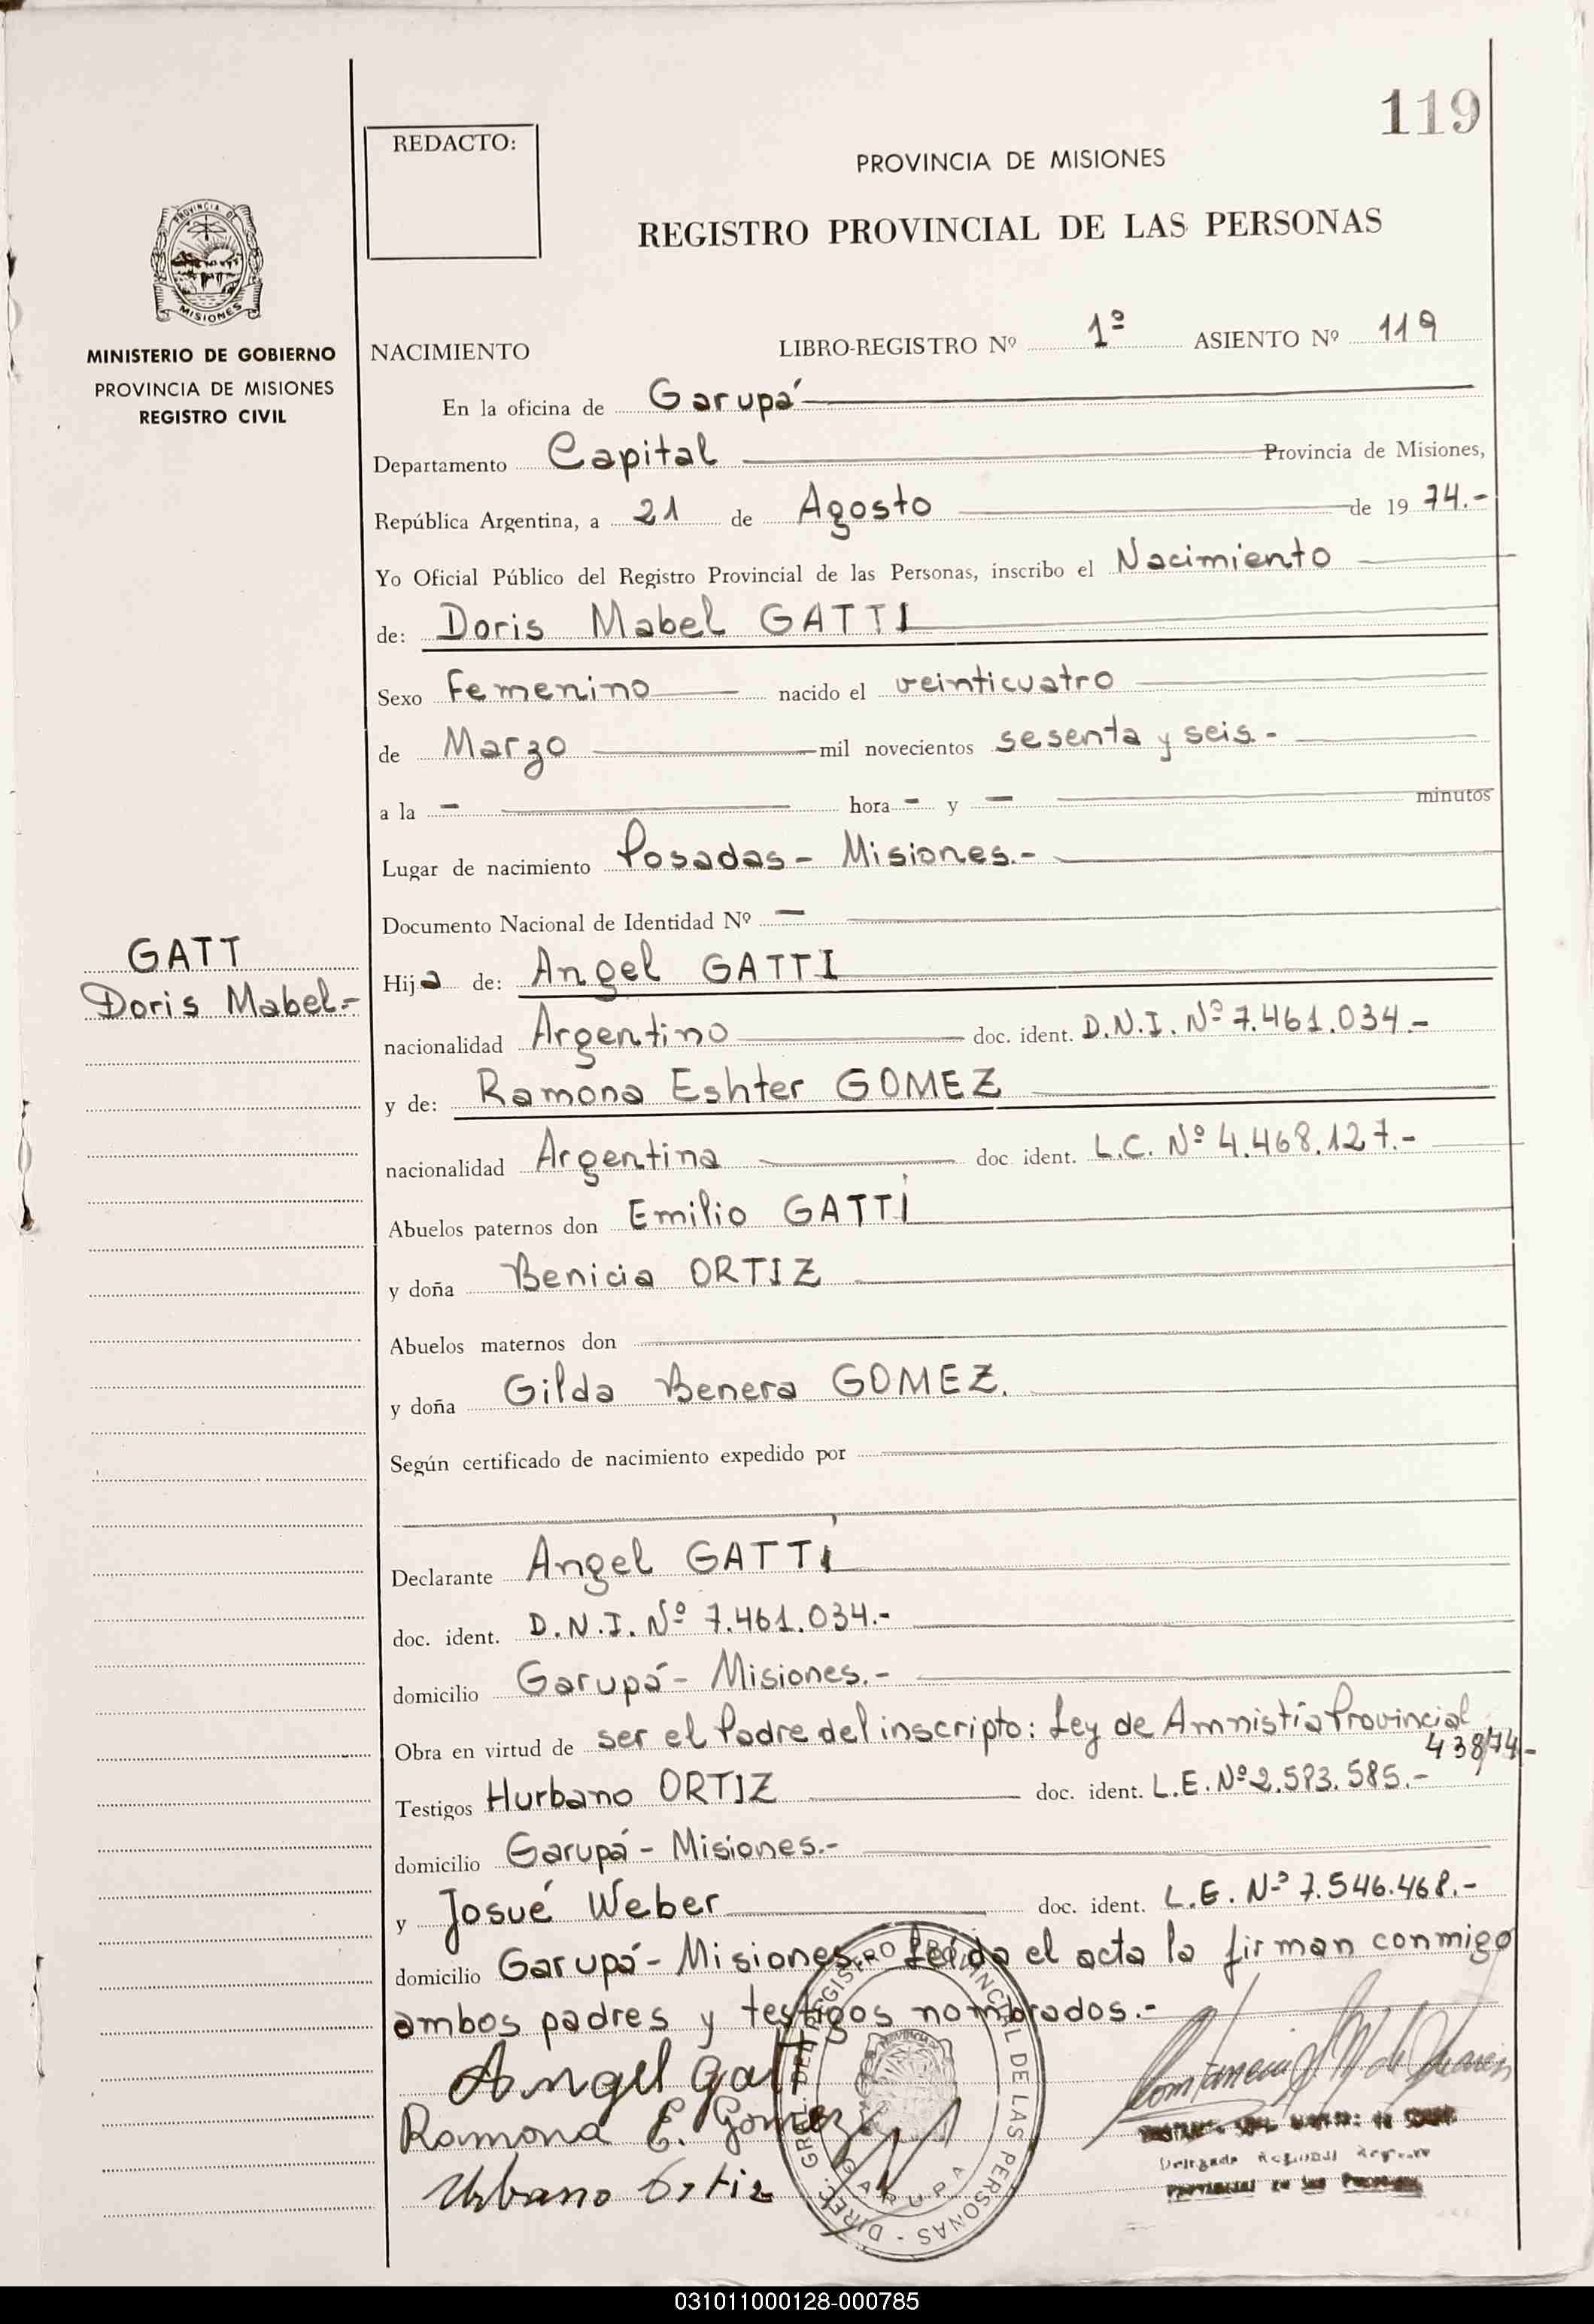 119
REDACTO:
PROVINCIA DE MISIONES
REGISTRO PROVINCIAL DE LAS PERSONAS
PROVINCIA DE
MISIONES
MINISTERIO DE GOBIERNO
PROVINCIA DE MISIONES
REGISTRO CIVIL
NACIMIENTO LIBRO-REGISTRO Nº 1º ASIENTO Nº 119
En la oficina de Garupá
Departamento Capital Provincia de Misiones,
República Argentina, a 21 de Agosto de 1974.-
Yo Oficial Público del Registro Provincial de las Personas, inscribo el Nacimiento
de: Doris Mabel GATTI
Sexo Femenino nacido el veinticuatro
de Marzo mil novecientos sesenta y seis.-
a la - hora - y - minutos
Lugar de nacimiento Posadas - Misiones.-
Documento Nacional de Identidad Nº -
GATT
Doris Mabel.-
Hija de: Angel GATTI
nacionalidad Argentino doc. ident. D.N.I. Nº 7.461.034.-
y de: Ramona Eshter GOMEZ
nacionalidad Argentina doc. ident. L.C. Nº 4.468.127.-
Abuelos paternos don Emilio GATTI
y doña Benicia ORTIZ
Abuelos maternos don
y doña Gilda Benera GOMEZ.
Según certificado de nacimiento expedido por
Declarante Angel GATTI
doc. ident. D.N.I. Nº 7.461.034.-
domicilio Garupá - Misiones.-
Obra en virtud de ser el Padre del inscripto: Ley de Amnistía Provincial
438/74-
Testigos Hurbano ORTIZ doc. ident. L.E. Nº 2.583.585.-
domicilio Garupá - Misiones.-
y Josué Weber doc. ident. L.E. Nº 7.546.468.-
domicilio Garupá - Misiones. Leída el acta la firman conmigo
ambos padres y testigos nombrados.-
Angel Gatt
Ramona E. Gomez
Urbano Ortiz
DIREC. GRAL. DEL REGISTRO PROVINCIAL DE LAS PERSONAS -
GARUPA
Delegada Regional
031011000128-000785